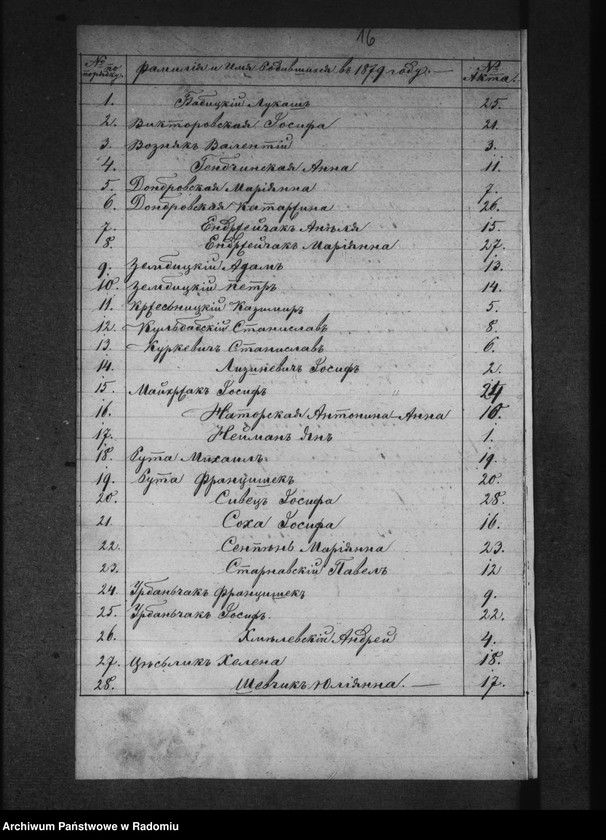 16
№ по порядку. Фамилія и Имя Родившихся въ 1879 году. — № Акта.
1. Бабицкій Лукашъ 25.
2. Викторовская Іосифа 21.
3. Вознякъ Валентій 3.
4. Гендчинская Анна 11.
5. Домбровская Маріянна 7.
6. Домбровская Катаржина 26.
7. Ендржейчакъ Анѣля 15.
8. Ендржейчакъ Маріянна 27.
9. Зембицкій Адамъ 13.
10. Зембицкій Петръ 14.
11. Кржесьницкій Казимиръ 5.
12. Кульбабскій Станиславъ 8.
13. Куркевичъ Станиславъ 6.
14. Лизиневичъ Іосифъ 2.
15. Майхржакъ Іосифъ 24
16. Наторская Антонина-Анна 10.
17. Нейманъ Янъ 1.
18. Рута Михаилъ 19.
19. Рута Францишекъ 20.
20. Сивецъ Іосифа 28.
21. Соха Іосифа 16.
22. Маріянна 23.
23. Старнавскій Павелъ 12
24. Урбаньчакъ Францишекъ 9.
25. Урбаньчакъ Іосифъ 22.
26. Хмѣлевскій Андрей 4.
27. Цѣсьликъ Хелена 18.
28. Шевчикъ Юліянна. — 17.
Archiwum Państwowe w Radomiu